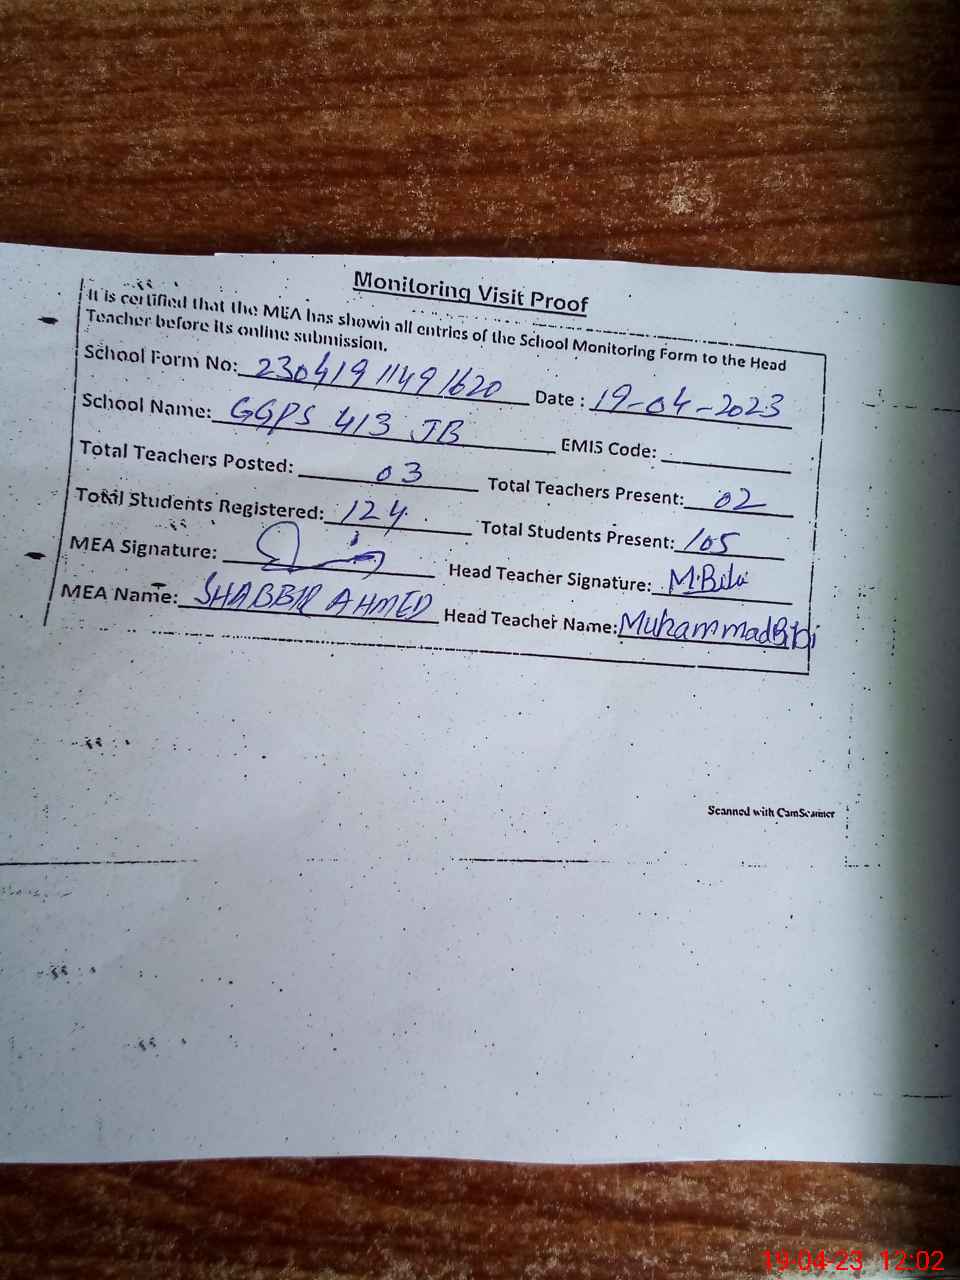 Monitoring Visit Proof
It is certified that the MEA has shown all entries of the School Monitoring Form to the Head
Teacher before its online submission.
School Form No: 230419 1149 1620 Date : 19-04-2023
School Name: GGPS 413 JB EMIS Code:
Total Teachers Posted: 03 Total Teachers Present: 02
Total Students Registered: 124 Total Students Present: 105
MEA Signature: Head Teacher Signature: M.Bibi
MEA Name: SHABBIR AHMED Head Teacher Name: Muhammad Bibi
Scanned with CamScanner
19-04-23 12:02